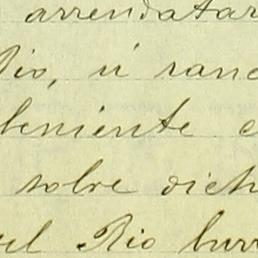 arrendatar
Rio, ú ranc
leniente e
solre dich
el Rio burr